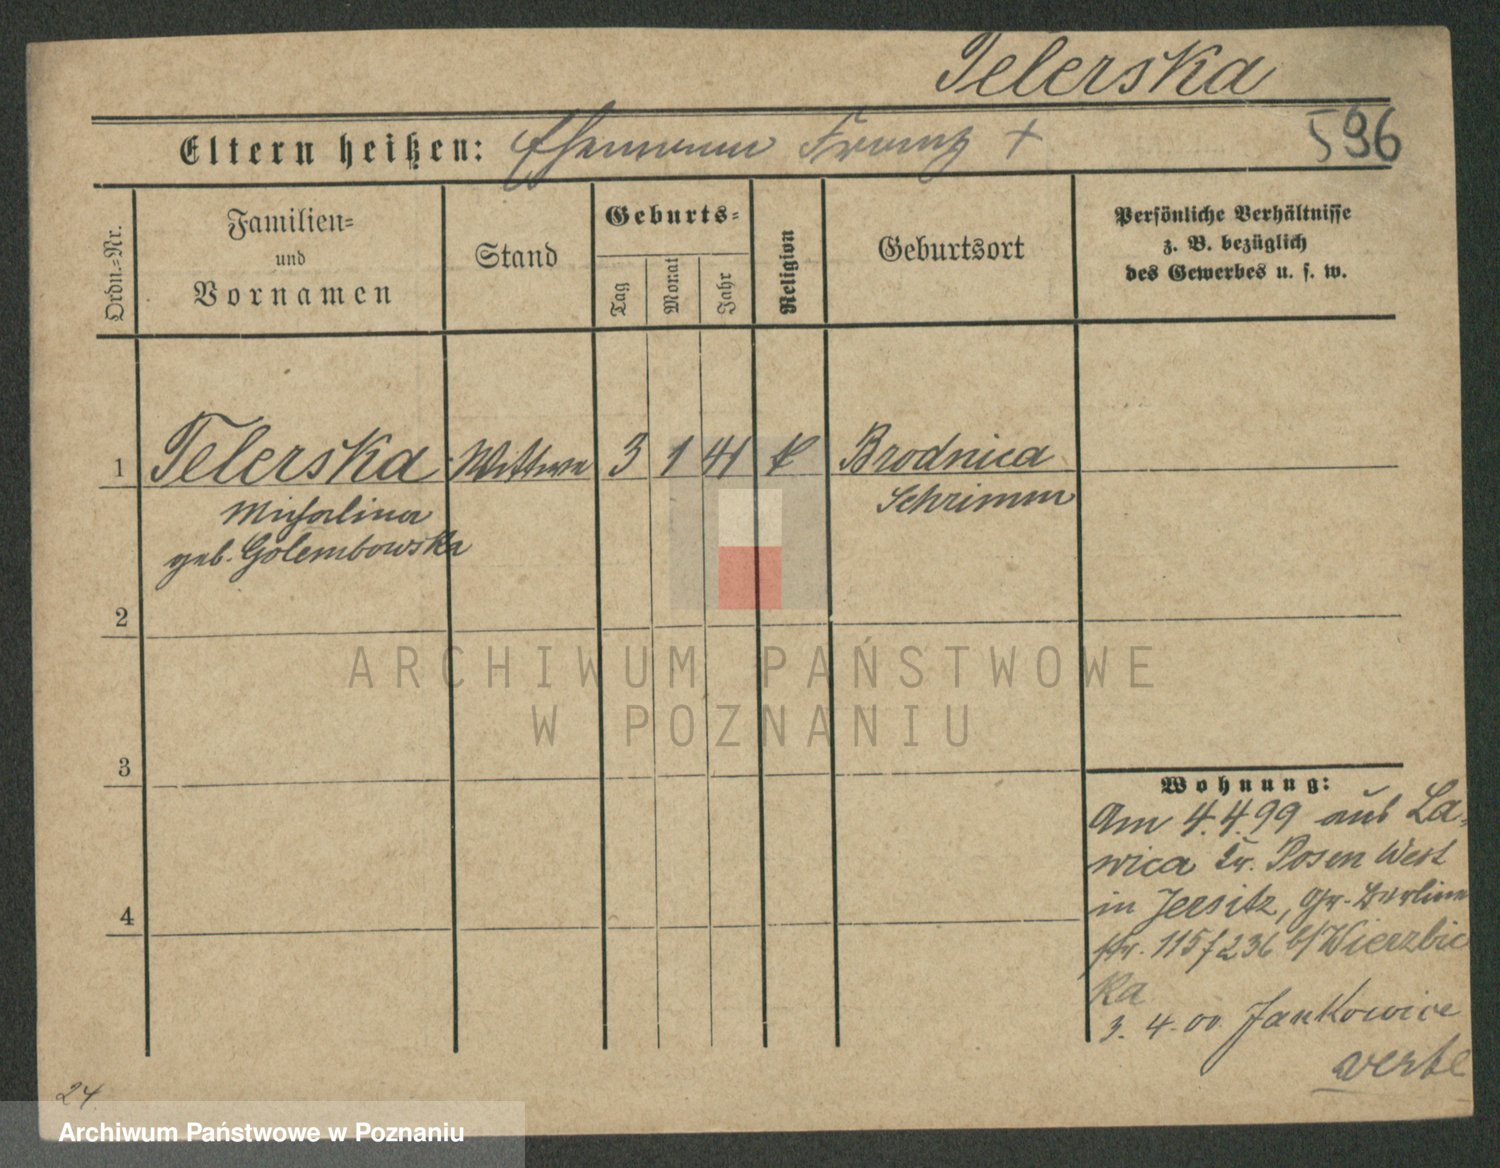 Telerska
Eltern heißen: Ehemann Franz +
596
Ordn.=Nr.
Familien=
und
Vornamen
Stand
Geburts=
Tag
Monat
Jahr
Religion
Geburtsort
Persönliche Verhältnisse
z. B. bezüglich
des Gewerbes u. s. w.
1 Telerska Wittwe 3 1 41 k Brodnica
Schrimm
Michalina
geb. Golembowska
2
ARCHIWUM PAŃSTWOWE
W POZNANIU
3
Wohnung:
Am 4.4.99 aus La-
wica Kr. Posen West
in Jersitz, Gr. Berliner
str. 115/236 b/Wierzbic
ka
3. 4. 00 Jankowice
verte
4
24
Archiwum Państwowe w Poznaniu